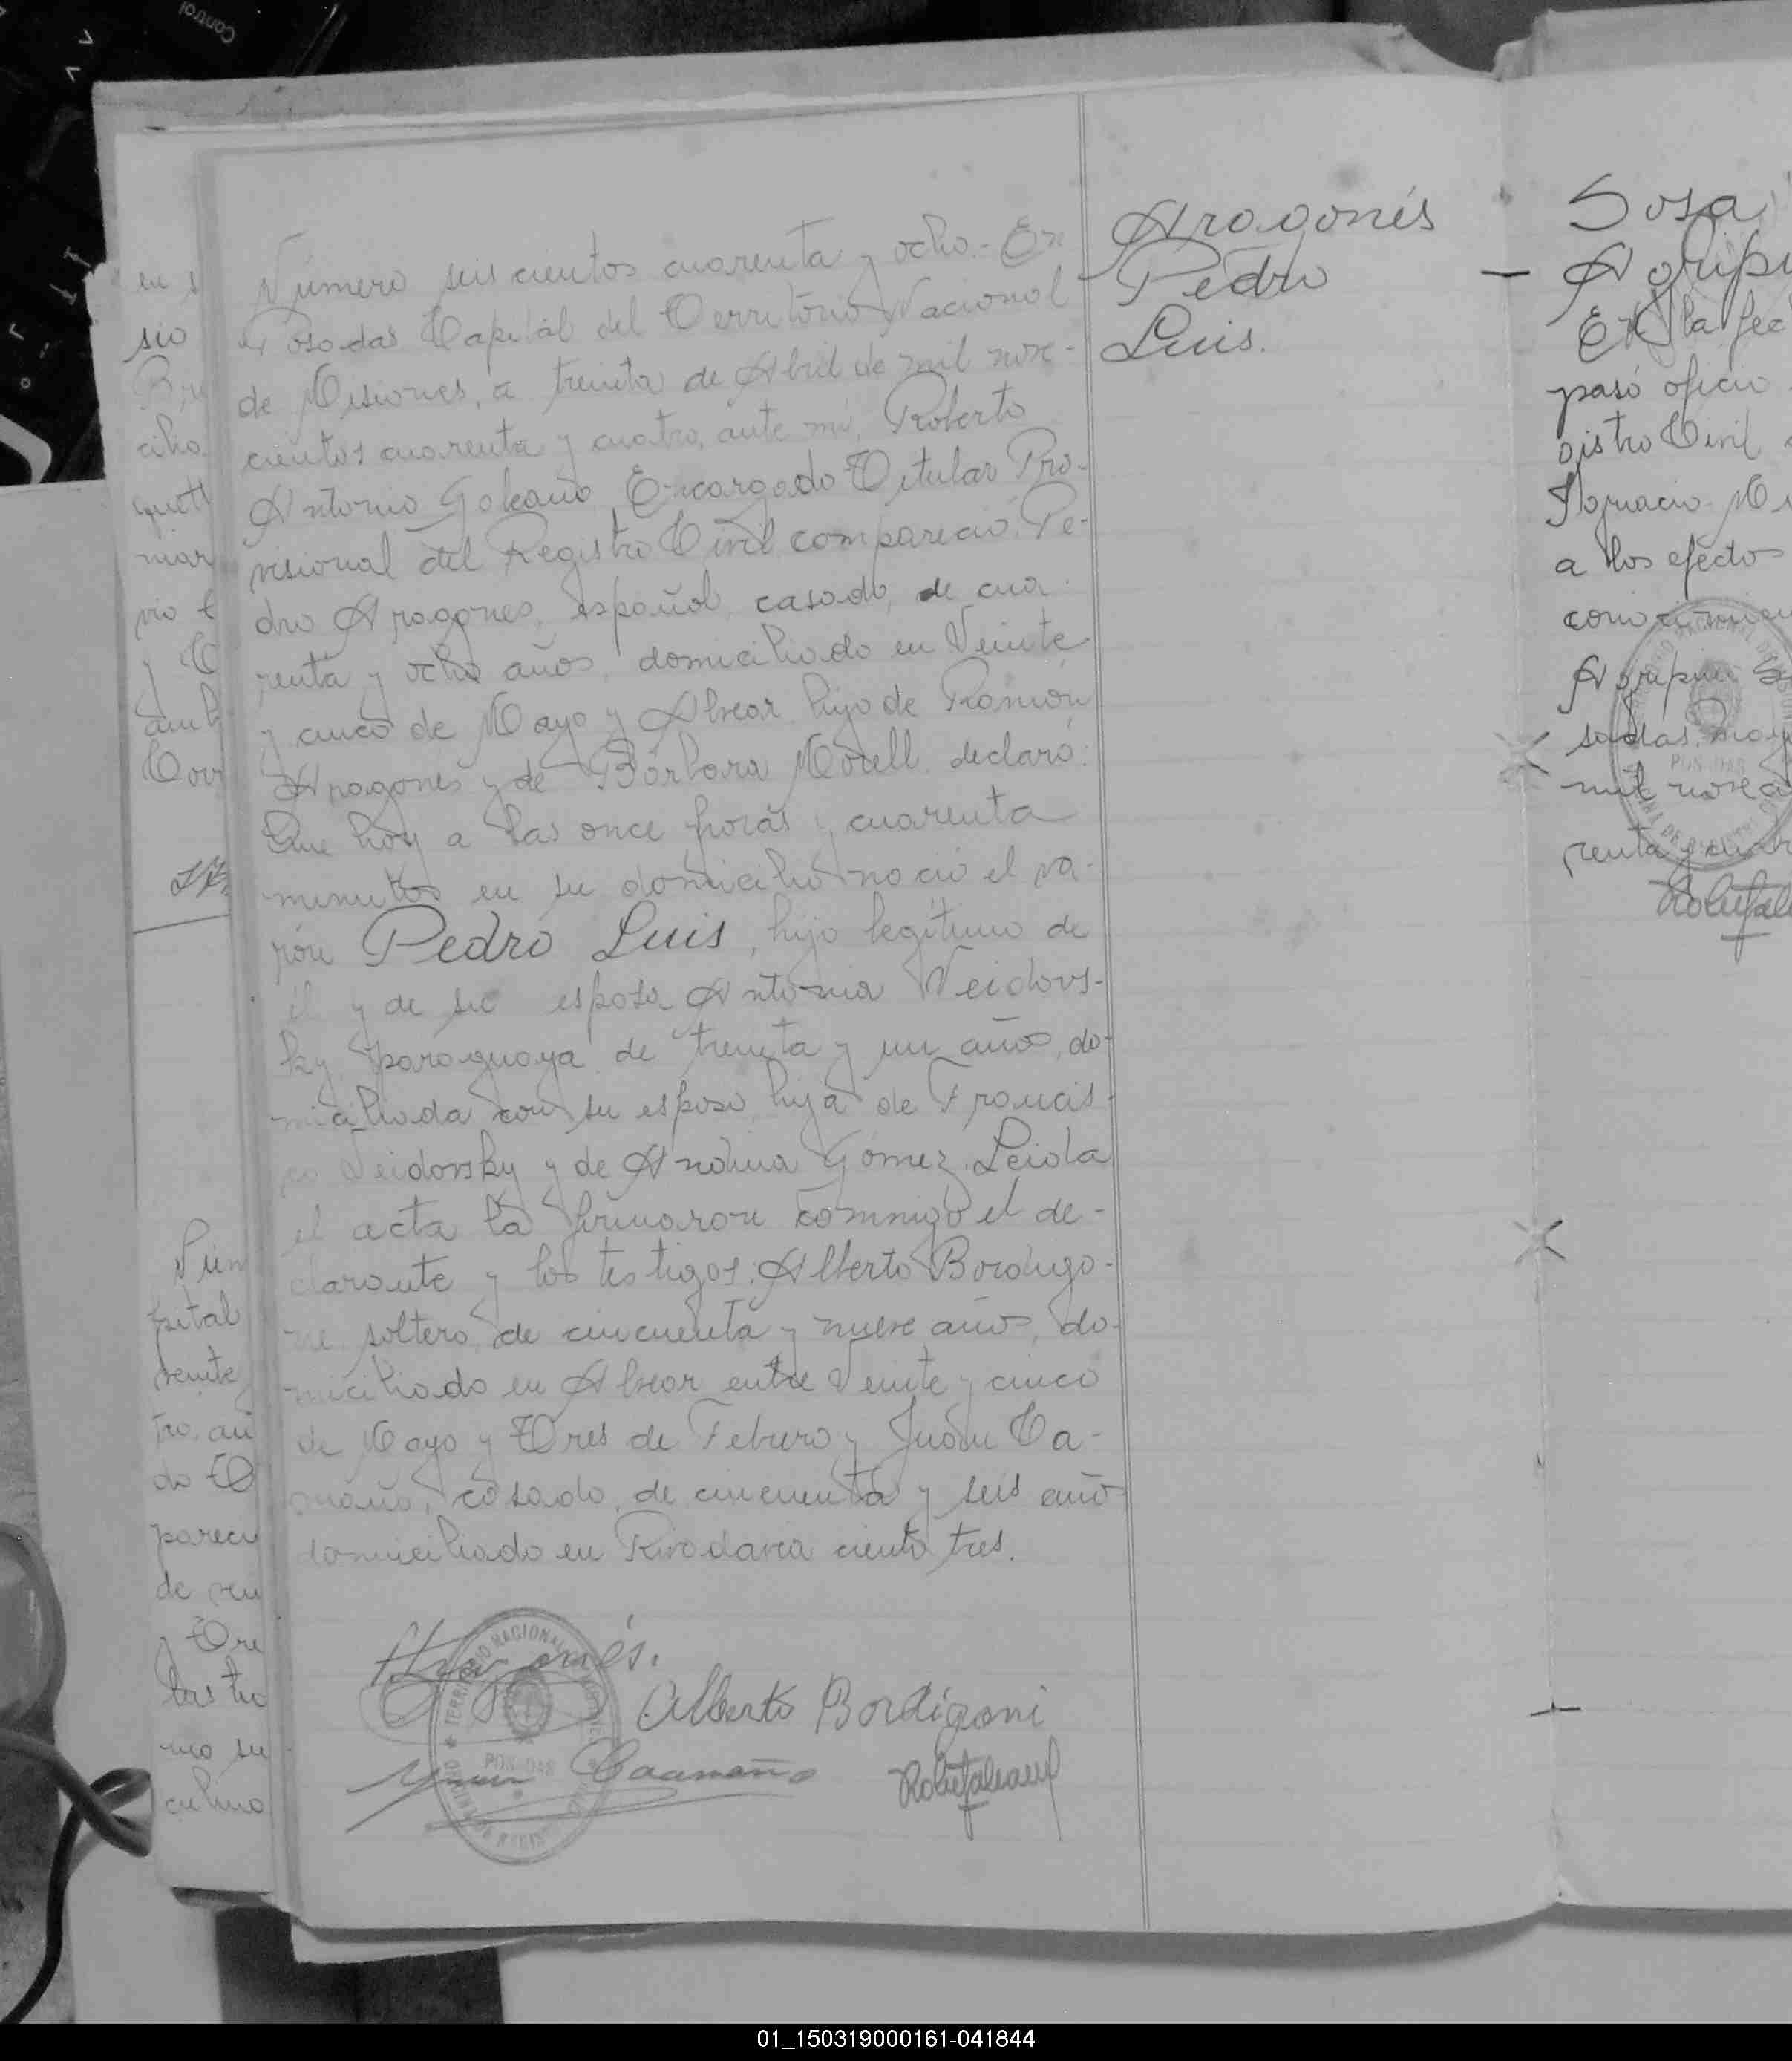 Número seis cientos cuarenta y ocho.- En
Posadas Capital del Territorio Nacional
de Misiones, a treinta de Abril de mil nove-
cientos cuarenta y cuatro, ante mí, Roberto
Antonio Galeano, Encargado Titular Pro-
visional del Registro Civil, compareció: Pe-
dro Aragones, español, casado, de cua-
renta y ocho años, domiciliado en Veinte
y cinco de Mayo y Alvear, hijo de Ramón
Aragones y de Bárbara Morell, declaró:
Que hoy a las once horas y cuarenta
minutos en su domicilio nació el va-
rón Pedro Luis, hijo legítimo de
él y de su esposa Antonia Neidovs-
ky, paraguaya de treinta y un años, do-
miciliada con su esposo, hija de Francis-
co Neidovsky y de Gómez. Leida
el acta la firmaron conmigo el de-
clarante y los testigos: Alberto Bordigo-
ne, soltero, de cincuenta y nueve años, do-
miciliado en Alvear entre Veinte y cinco
de Mayo y Tres de Febrero y Juan Ca-
maño, casado, de cincuenta y seis año
domiciliado en Rivadavia ciento tres.
Aragonés.
Alberto Bordigoni
Juan Caamaño
TERRITORIO NACIONAL DE MISIONES
POSADAS
Aragonés
Pedro
Luis.
Sosa
Agripi
En la fec
pasó oficio
gistro Civil
Ignacio Mi
a los efectos
Agripin
sadas, may
mil nove
renta y cuat
POSADAS
en s
sio
ciho
mar
vio
y C
Núm
pital
veinte
tro, an
do T
pareci
de vei
y Tre
las tio
Control
01_150319000161-041844